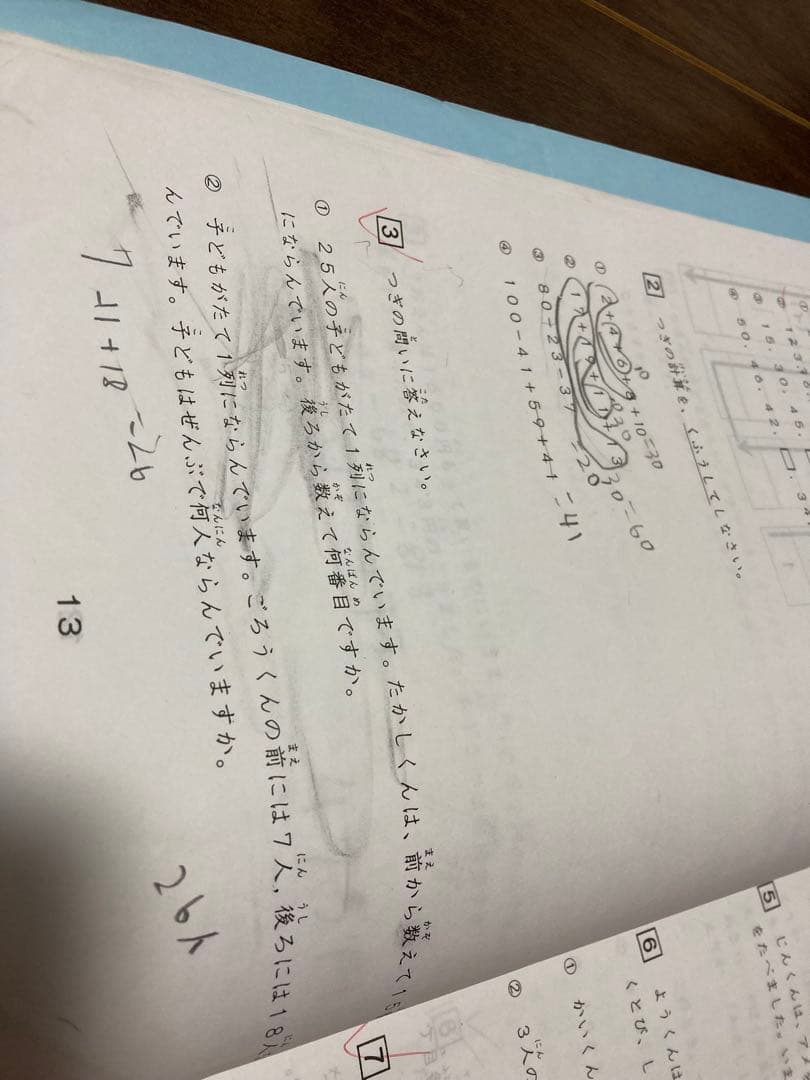 2 つぎの計算を、くふうしてしなさい。
① 12+14+6+8+10=30
② 17+19+11+13 30=60
③ 80-23-37=20
④ 100-41+59+41=41
3 つぎの問いに答えなさい。
① 25人の子どもがたて1列にならんでいます。たかしくんは、前から数えて
にならんでいます。後ろから数えて何番目ですか。
② 子どもがたて1列にならんでいます。ごろうくんの前には7人，後ろには18人
んでいます。子どもはぜんぶで何人ならんでいますか。
7+1+18=26
26人
13
5 じんくんは、アメ
をたべました。いま
6 ようくんは
くとび、し
① かいくん
② 3人の
7